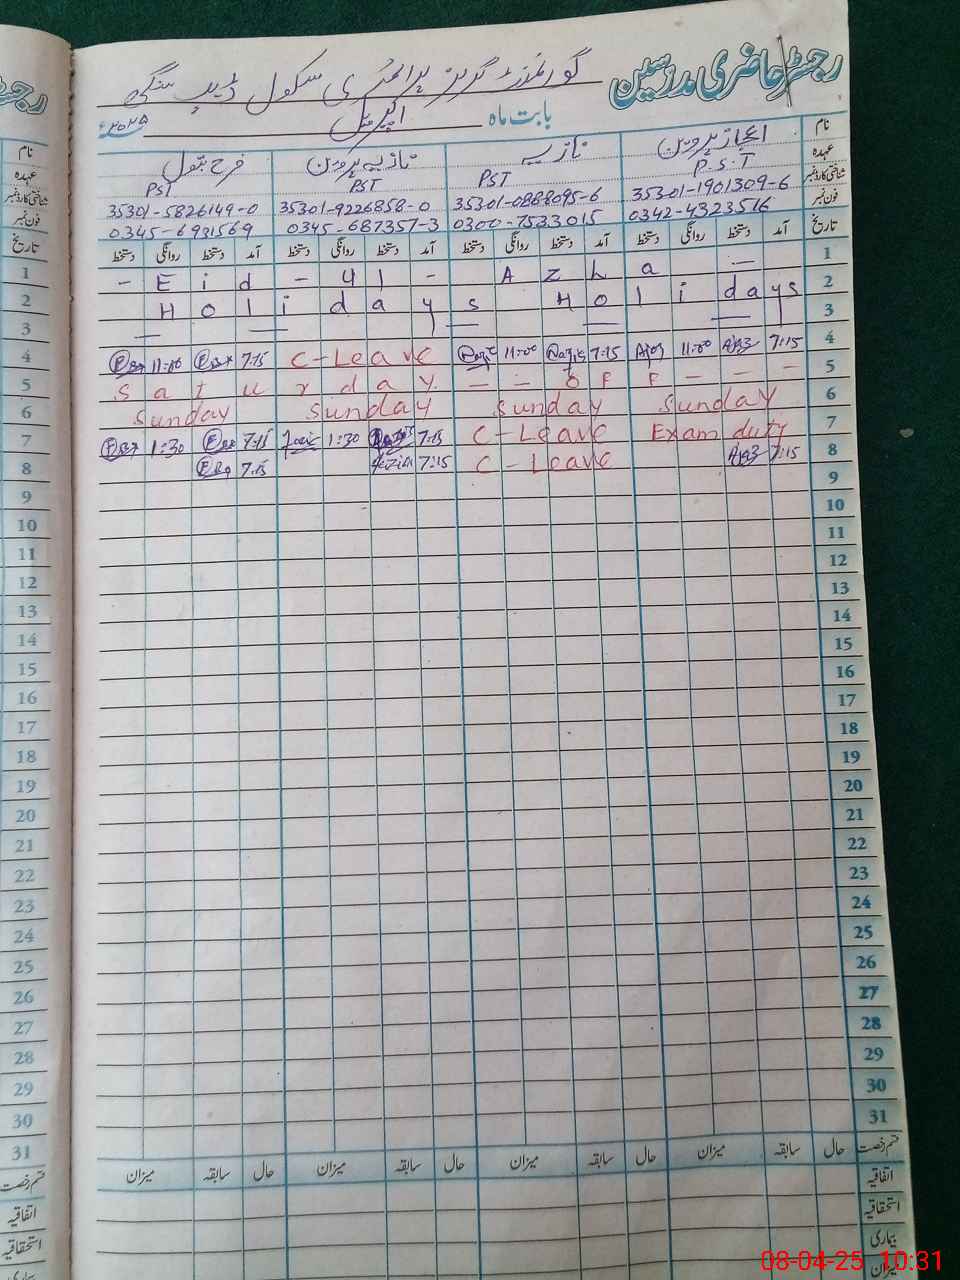 رجسٹر حاضری مدرسین
گورنمنٹ گرلز پرائمری سکول ڈیپ سنگی
بابت ماہ اپریل ۲۰۲۵ء
نام اعجاز پروین نازیہ نازیہ پروین فرح بتول
عہدہ P.S.T PST PST PST
شناختی کارڈ نمبر 35301-1901309-6 35301-0888095-6 35301-9226858-0 35301-5826149-0
فون نمبر 0342-4323516 0300-7533015 0345-687357-3 0345-6931569
تاریخ آمد دستخط روانگی دستخط آمد دستخط روانگی دستخط آمد دستخط روانگی دستخط آمد دستخط روانگی دستخط
- E i d - u l - A z h a - 1
H o l i d a y s H o l i d a y s 2
3
11:00 7:15 C-Leave 11:00 7:15 11:00 7:15 4
S a t u r d a y - - O F F - - - 5
Sunday Sunday Sunday Sunday 6
1:30 7:15 1:30 7:15 C-Leave Exam duty 7
7:15 7:15 C-Leave 7:15 8
9
10
11
12
13
14
15
16
17
18
19
20
21
22
23
24
25
26
27
28
29
30
31
قسم رخصت حال سابقہ میزان حال سابقہ میزان حال سابقہ میزان حال سابقہ میزان
اتفاقیہ
استحقاقیہ
بیماری
میزان
رجسٹر
نام
عہدہ
شناختی کارڈ نمبر
فون نمبر
تاریخ
1
2
3
4
5
6
7
8
9
10
11
12
13
14
15
16
17
18
19
20
21
22
23
24
25
26
27
28
29
30
31
قسم رخصت
اتفاقیہ
استحقاقیہ
بیماری
08-04-25 10:31